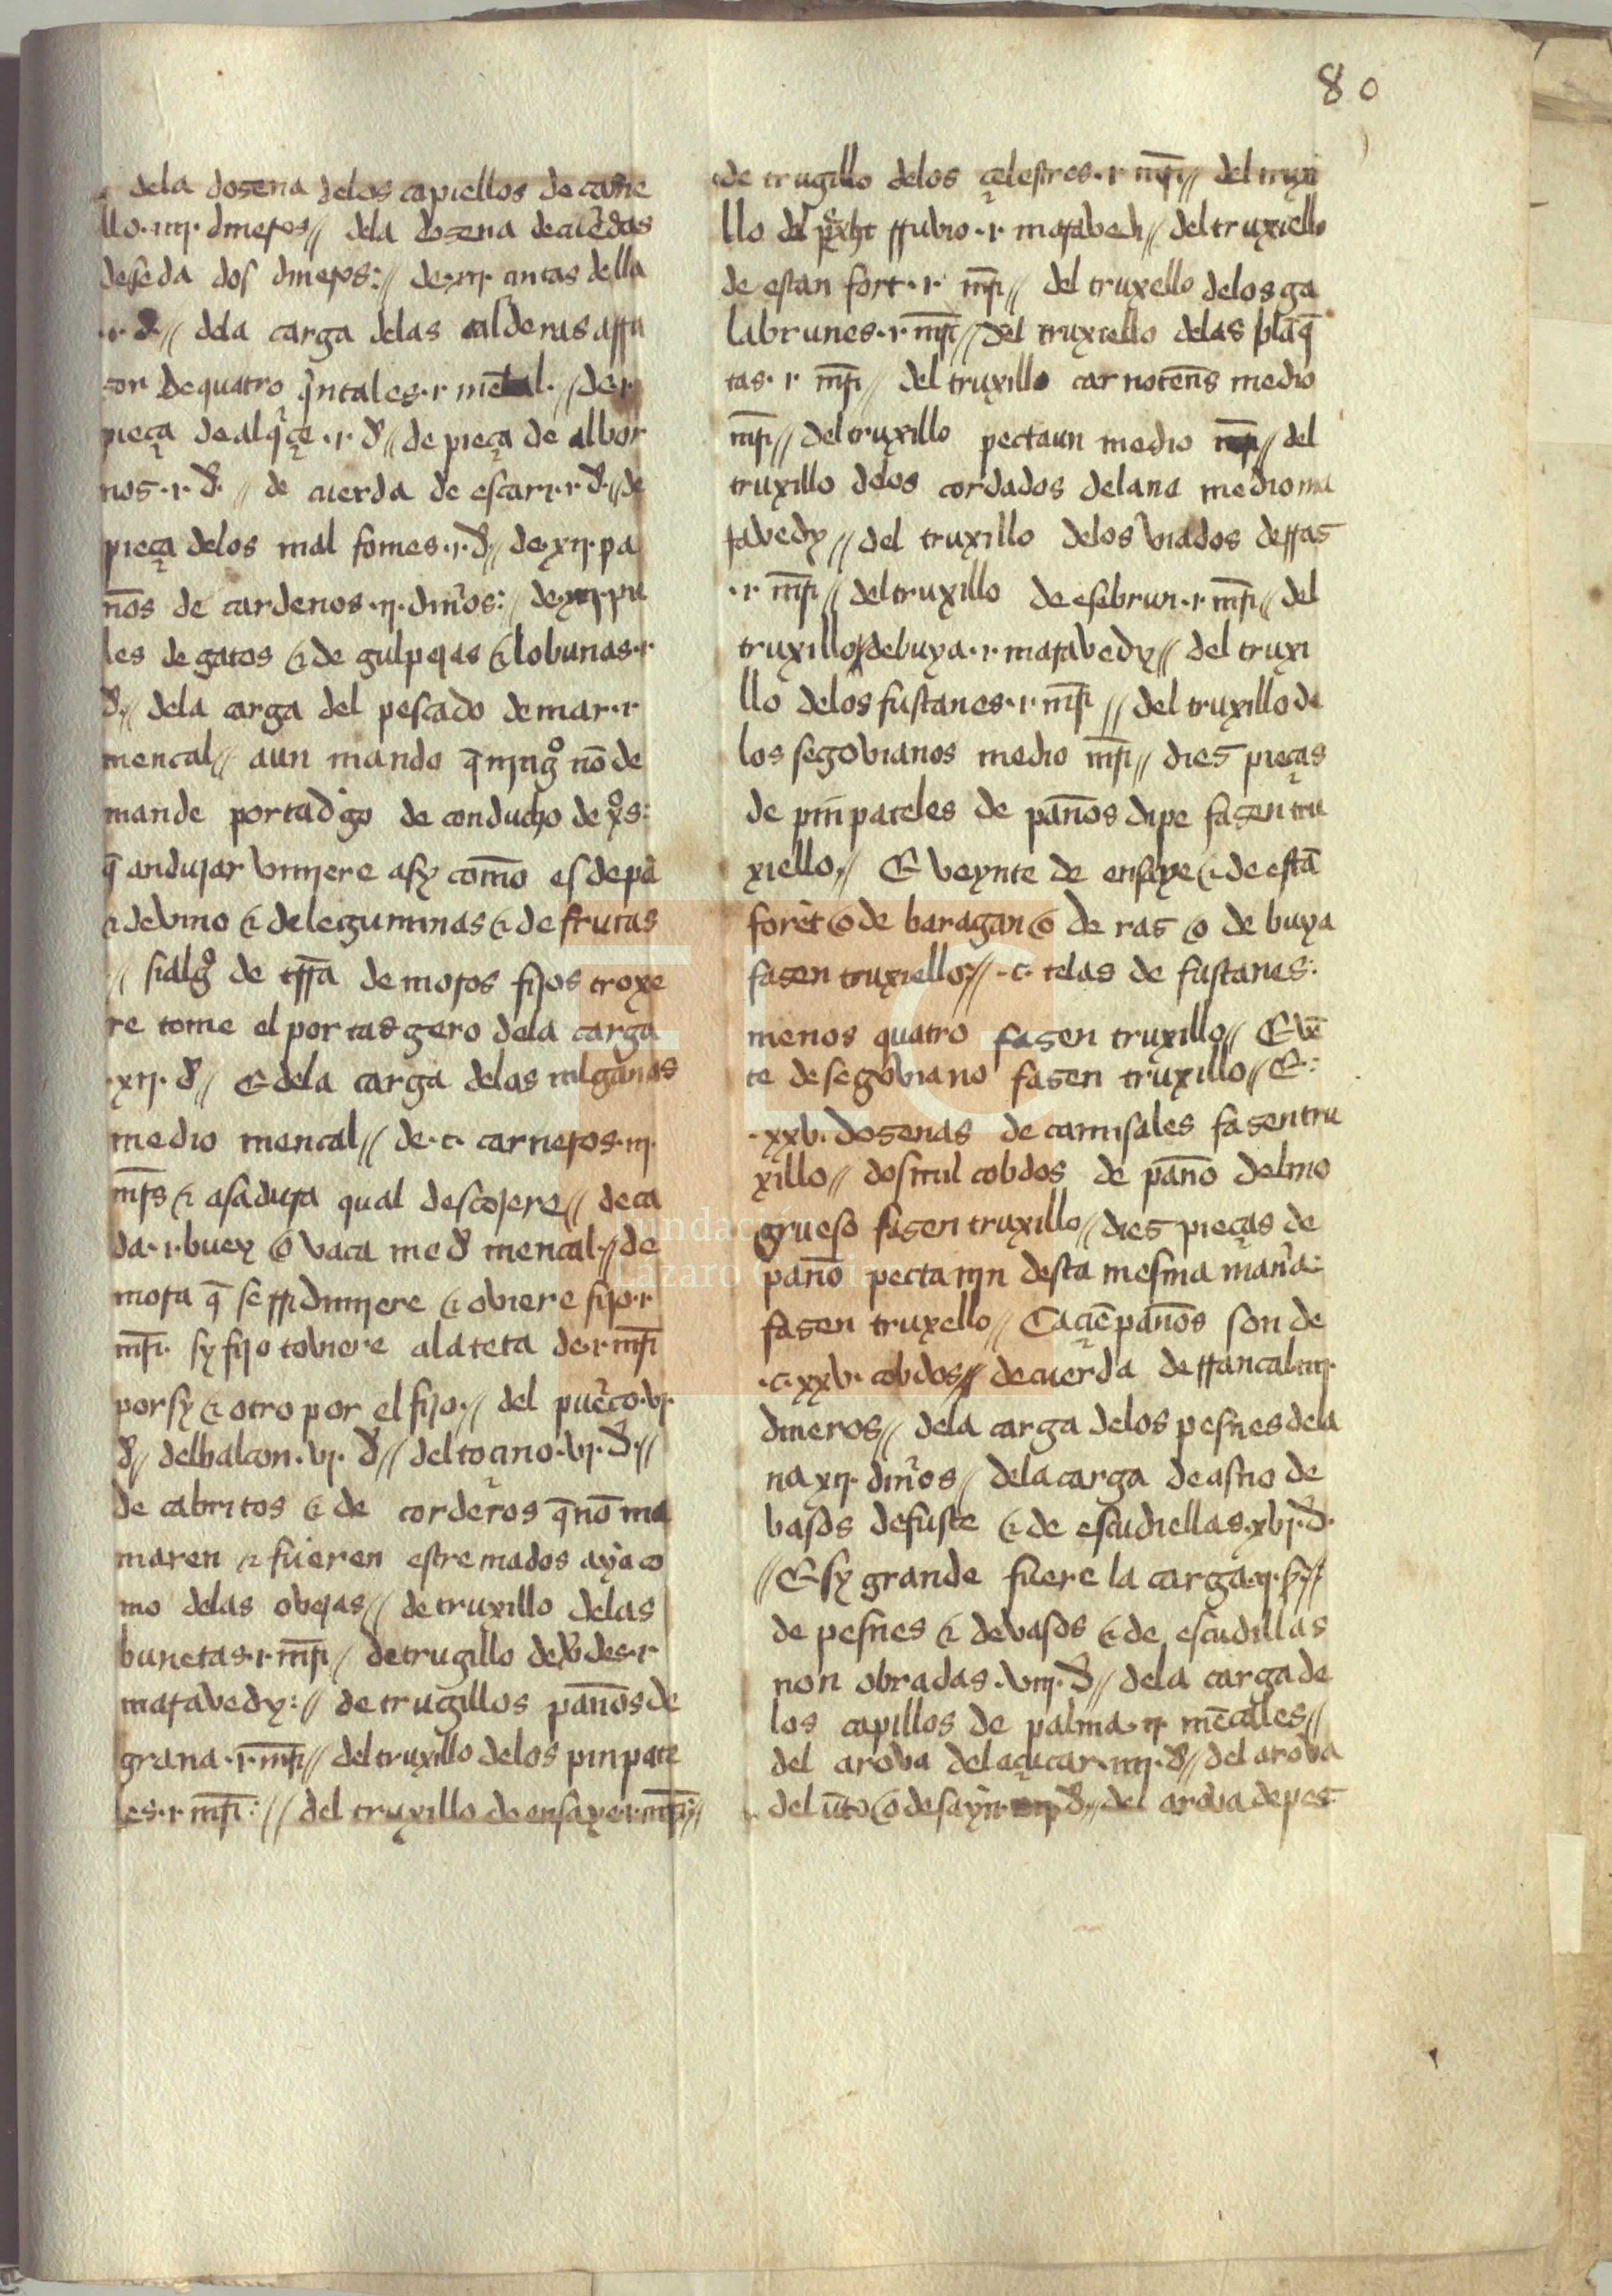 80
dela dosena delos capiellos de cañe
llo .iiij. dineros // dela dosena de cuedas
de seda dos dineros: // de .xiij. cintas della
.i. d // dela carga delas calderas assu
de quatro qntales .i. mencal // de .i.
pieça de alqçe .i. d // de pieça de albor
nos .i. d. // de cuerda de escari .i. d // de
pieça delos mal fomes .i. d // de .xij. pa
nos de cardenos .ij. dinos: // de pie
les de gatos & de gulpejas & lobunas .i.
d // dela carga del pescado de mar .i.
mencal // aun mando q ningo no de
mande portadgo de conducho de xos:
q andujar viniere asy como es de pa
& de vino & de leguminas & de frutas
// si algo de tissa de moros fijos troxe
re tome el portasgero dela carga
.xij. d // E dela carga delas milganas
medio mencal // de .c. carneros .iij.
mrs & asadura qual descojere // de ca
da .i. buey o vaca med mencal // de
mora q se rridimiere & oviere fijo .i.
mri. sy fijo toviere ala teta de .i. mri
por sy & otro por el fijo // del puerco .vj.
d // del balcon .vj. d // del toçino .vj. d //
de cabritos & de corderos q no ma
maren & fueren estremados aya co
mo delas ovejas // de truxillo delas
bunetas .i. mri // de trugillo de vdes .i.
maravedy: // de trugillos panos de
grana .i. mri // del truxillo delos pinpate
les .i. mri: // del truxillo de ensaye .i. mri //
de trugillo delos çelestres .i. mri // del truxi
llo del ssuvio .i. maravedi // del truxiello
de estan fort .i. mri // del truxello delos ga
labrunes .i. mri // del truxiello delas blaq
tas .i. mri // del truxillo carnotens medio
mri // del truxillo pectaun medio mri // del
truxillo delos cordados de lana medio ma
ravedy // del truxillo delos viados de rras
.i. mri // del truxillo de esebrun .i. mri // del
truxillo de buya .i. maravedy // del truxi
llo delos fustanes .i. mri // del truxillo de
los segovianos medio mri // dies pieças
de pinpateles de panos dipe fasen tru
xiello // E veynte de ensaye & de esta
foret o de baragan o de ras o de buya
fasen truxiello // .c. telas de fustanes:
menos quatro fasen truxillo // E ve
te de segoviano fasen truxillo // E:
.xxv. dosenas de camisales fasen tru
xillo // dos mil cobdos de pano delino
grueso fasen truxillo // dies pieças de
pano pectamin desta mesma mana:
fasen truxello // Cacie panos son de
.c.xxv. cobdos // de cuerda de rrancal .iiij.
dineros // dela carga delos pesnes dela
na .xij. dinos // dela carga de asno de
basos de fuste & de escudiellas .xvj. d.
// E sy grande fuere la carga
de pesnes & de vasos & de escudillas
non obradas .viij. d // dela carga de
los capillos de palma .ij. mecales //
del arova del açucar .iiij. d // del arova
del uto o de sayn d // del arova de pes